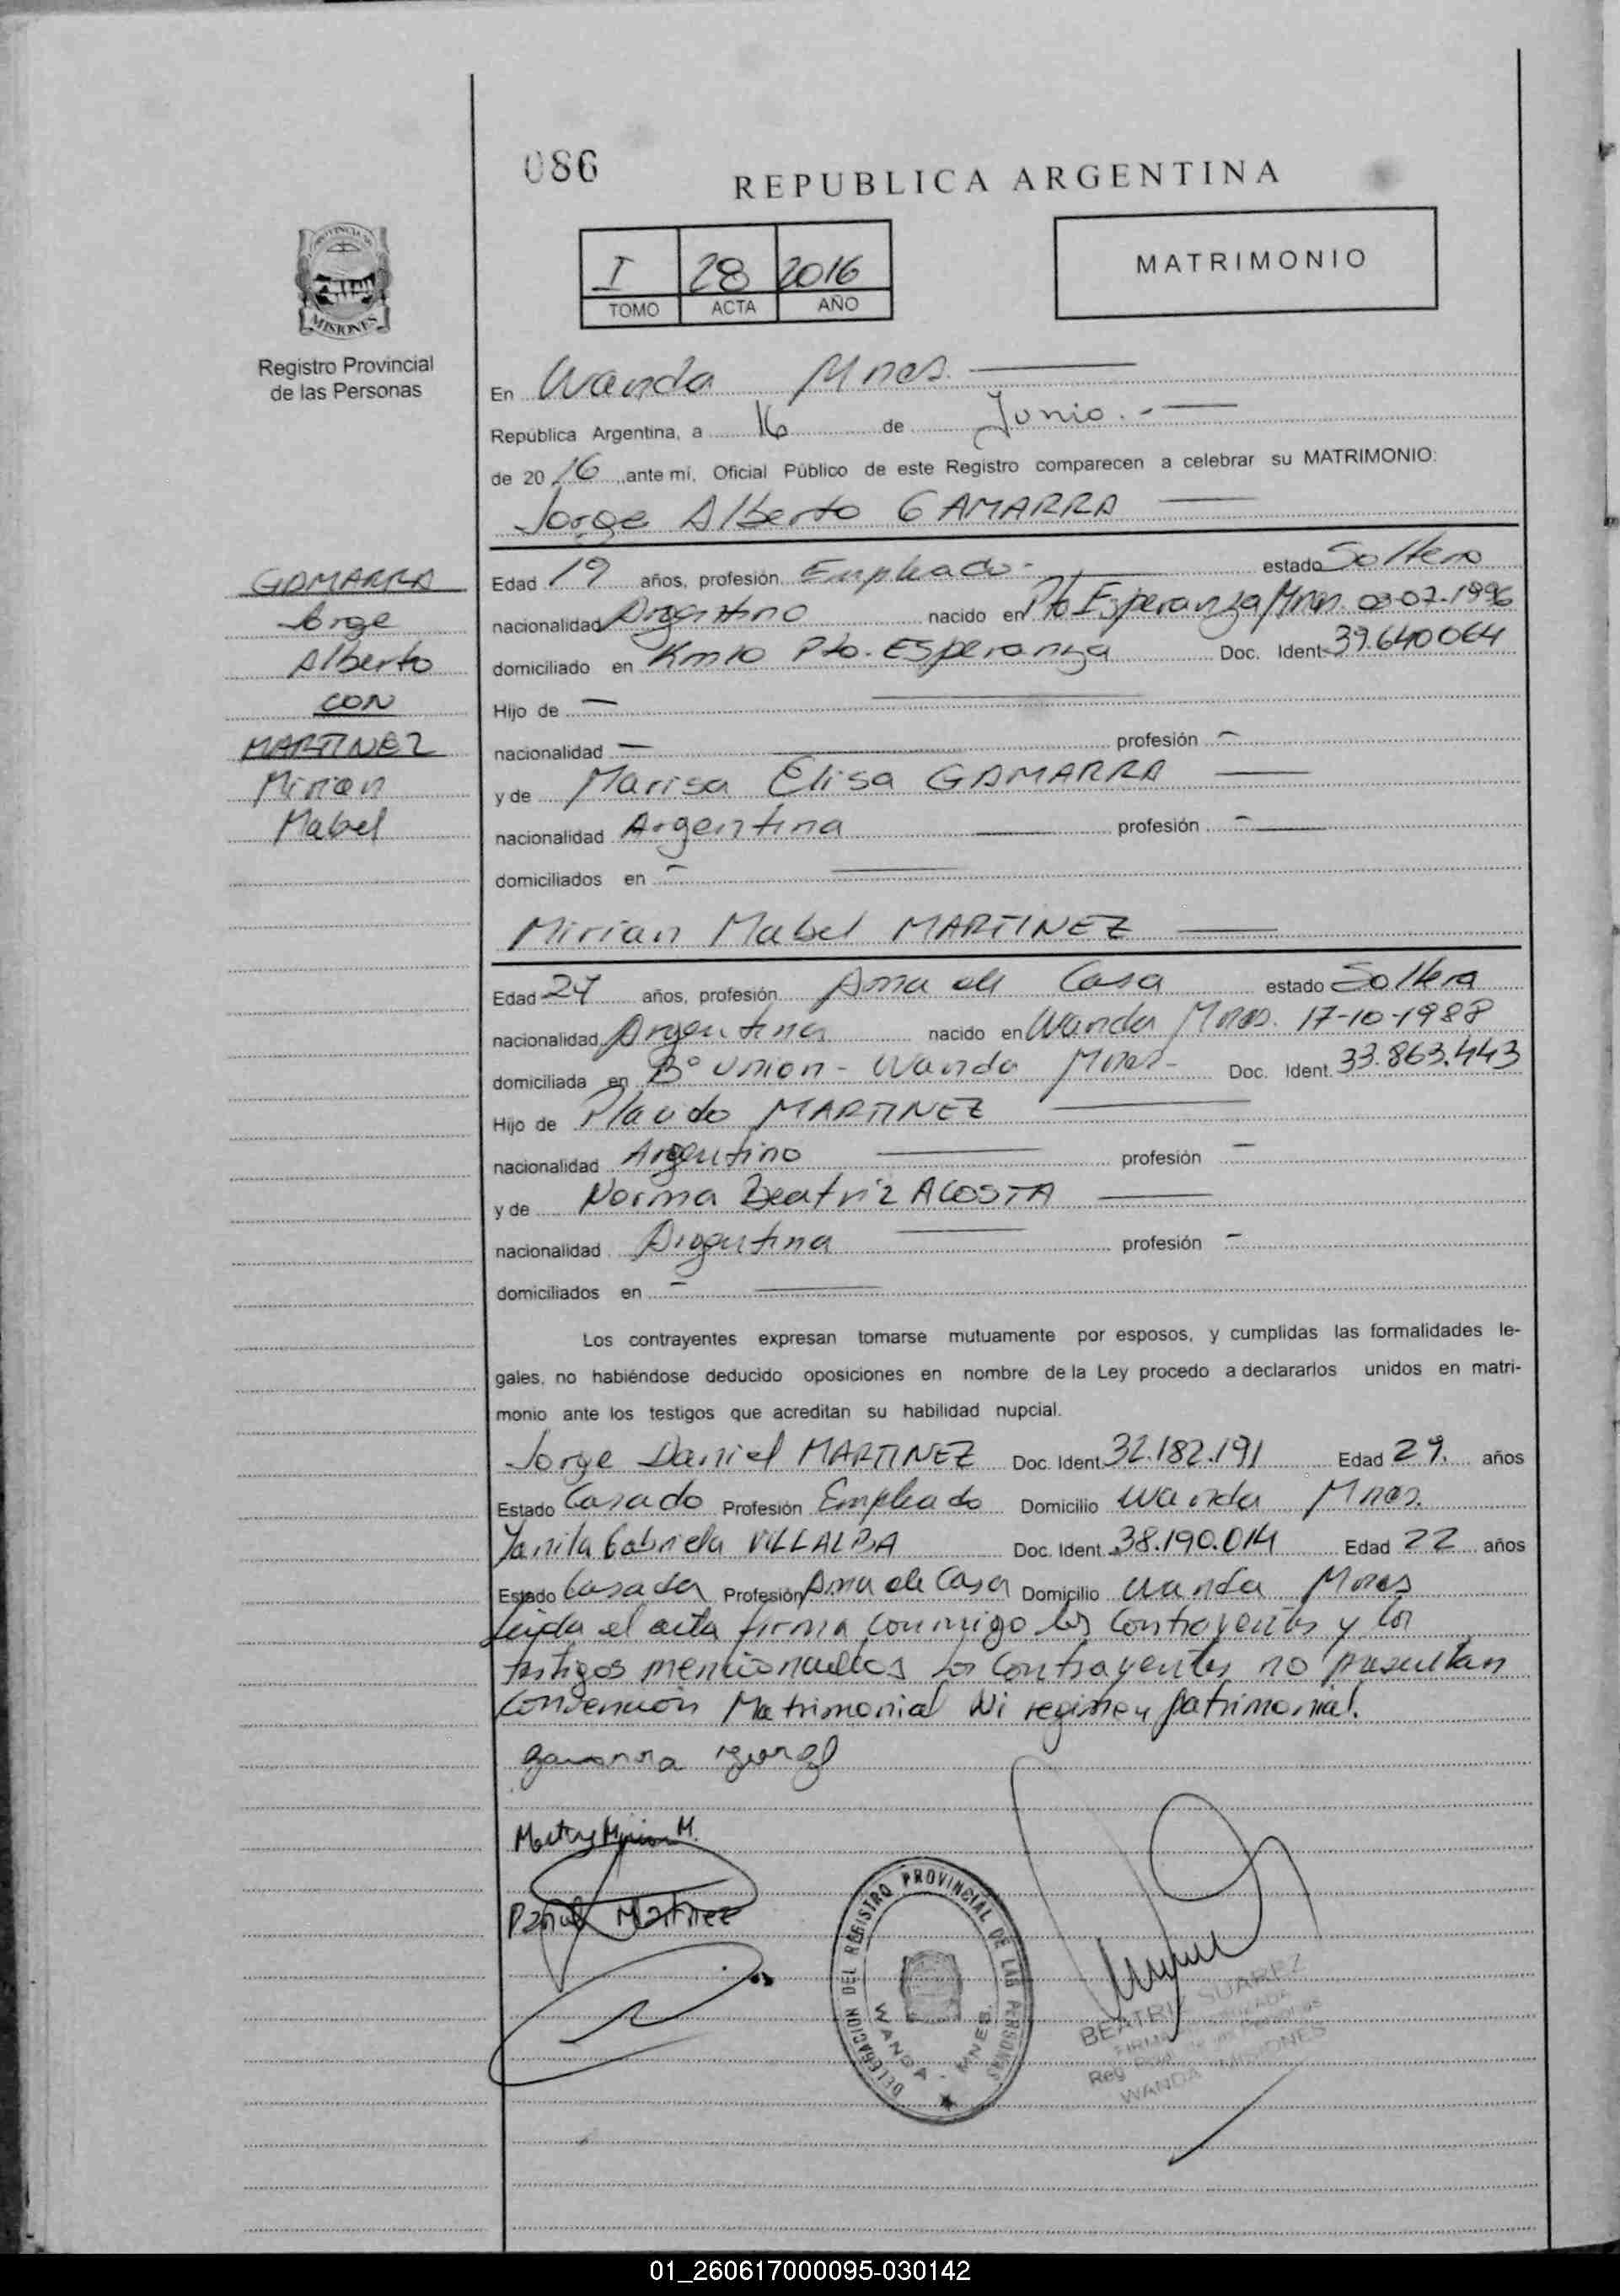 086
REPUBLICA ARGENTINA
I 28 2016
TOMO ACTA AÑO
MATRIMONIO
MISIONES
Registro Provincial
de las Personas
En Wanda Mnes.
República Argentina, a 16 de Junio.-
de 2016, ante mí, Oficial Público de este Registro comparecen a celebrar su MATRIMONIO:
Jorge Alberto GAMARRA
GAMARRA
Jorge
Alberto
CON
MARTINEZ
Mirian
Mabel
Edad 19 años, profesión Empleado.- estado Soltero
nacionalidad Argentino nacido en Pto Esperanza Mnes. 03-07-1996
domiciliado en Km 10 Pto. Esperanza Doc. Ident. 39.640064
Hijo de —
nacionalidad — profesión —
y de Marisa Elisa GAMARRA
nacionalidad Argentina profesión —
domiciliados en —
Mirian Mabel MARTINEZ
Edad 27 años, profesión Ama de Casa estado Soltera
nacionalidad Argentina nacido en Wanda Mnes. 17-10-1988
domiciliada en B° Union - Wanda Mnes- Doc. Ident. 33.863.443
Hijo de Placido MARTINEZ
nacionalidad Argentino profesión —
y de Norma Beatriz ACOSTA
nacionalidad Argentina profesión —
domiciliados en —
Los contrayentes expresan tomarse mutuamente por esposos, y cumplidas las formalidades le-
gales, no habiéndose deducido oposiciones en nombre de la Ley procedo a declararlos unidos en matri-
monio ante los testigos que acreditan su habilidad nupcial.
Jorge Daniel MARTINEZ Doc. Ident. 32.182.191 Edad 29. años
Estado Casado Profesión Empleado Domicilio Wanda Mnes.
Yanila Gabriela VILLALBA Doc. Ident. 38.190.014 Edad 22 años
Estado Casada Profesión Ama de Casa Domicilio Wanda Mnes
Leida el acta firma conmigo los Contrayentes y los
testigos mencionados los Contrayentes no presentan
Convención Matrimonial Ni regimen patrimonial.
gamarra Jorge
Martinez Mirian M.
Daniel Martinez
DELEGACION DEL REGISTRO PROVINCIAL DE LAS PERSONAS
WANDA - MNES.
BEATRIZ SUAREZ
WANDA - MISIONES
01_260617000095-030142